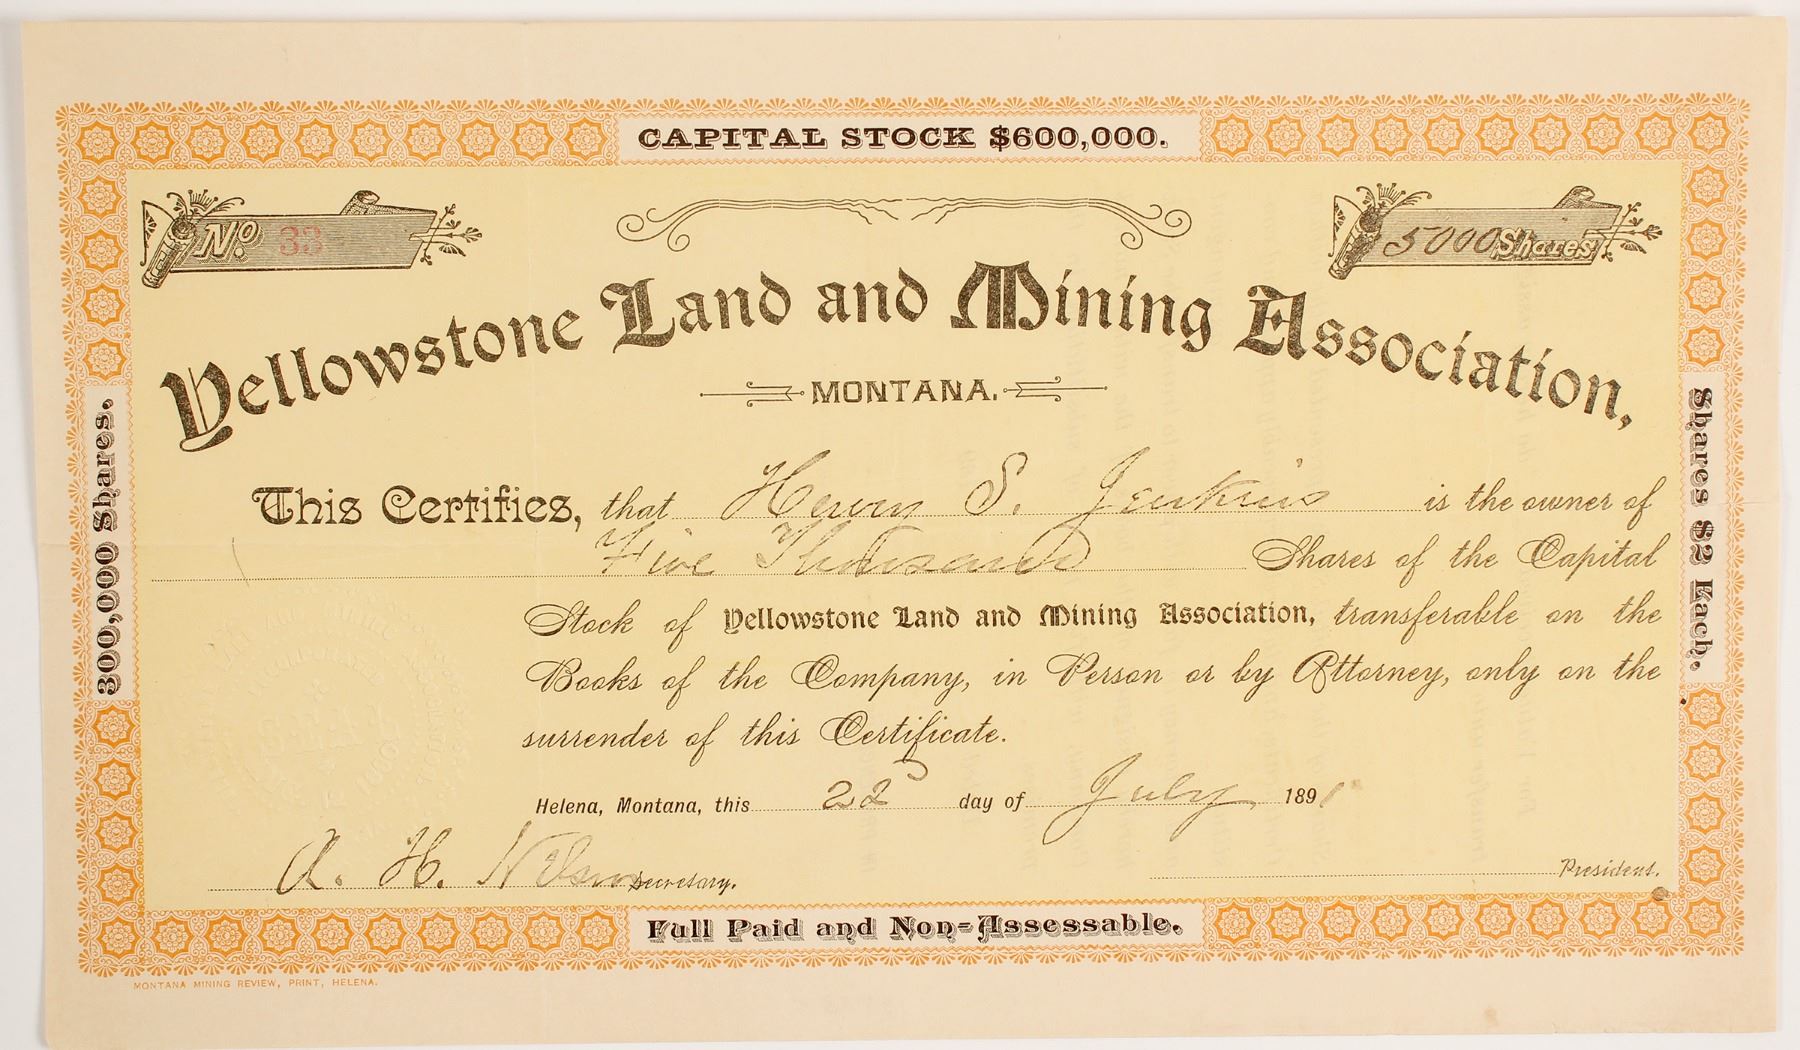 CAPITAL STOCK $600,000.
No. 33
5000 Shares
Yellowstone Land and Mining Association,
MONTANA.
300,000 Shares.
Shares $2 Each.
This Certifies, that S. Jenkins is the owner of
Five Thousand Shares of the Capital
Stock of Yellowstone Land and Mining Association, transferable on the
Books of the Company, in Person or by Attorney, only on the
surrender of this Certificate.
Helena, Montana, this 22 day of July 1891
A. H. Nelson Secretary.
President.
Full Paid and Non-Assessable.
MONTANA MINING REVIEW, PRINT, HELENA.